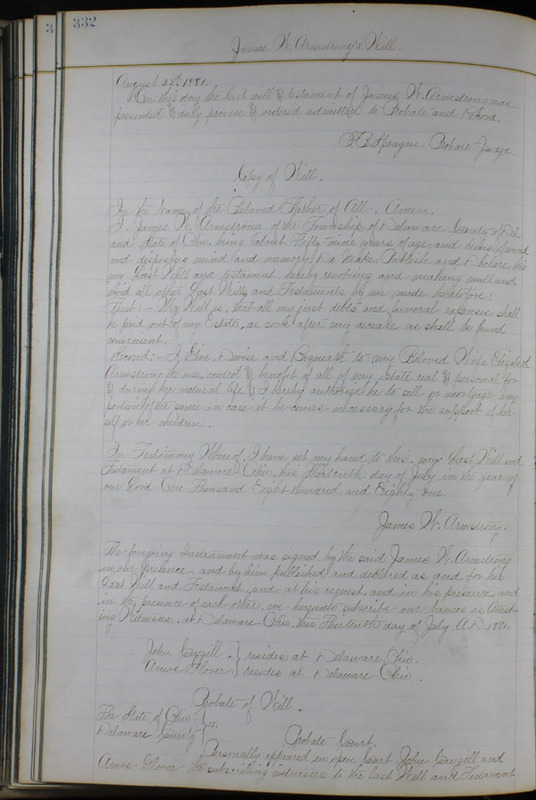 3 332
James W. Armstrong's Will.
August 22d, 1881.
On this day the last will & testament of James W. Armstrong was
presented & duly proven & ordered admitted to Probate and Record.
Sprague. Probate Judge
Copy of Will.
In the name of the Beloved Father of All. Amen.
I, James W. Armstrong of the Township of Delaware County of Del.
and State of Ohio, being about Fifty years of age, and being of sound
and disposing mind and memory, Do Make Publish and Declare this
my Last Will and testament hereby revoking and making null and
void all other Last Wills and Testaments by me made heretofore:
First:- My Will is, that all my just debts and funeral expenses shall
be paid out of my Estate, as soon after my decease as shall be found
convenient.
Second:- I Give, Devise and Bequeath to my Beloved Wife
Armstrong the use, control & benefit of all of my estate real & personal for
& during her natural life & I hereby authorize her to sell or mortgage any
portion of the same in case it becomes necessary for the support of her-
self or her children.
In Testimony Whereof, I have set my hand to this, my Last Will and
Testament at Delaware Ohio, this Thirteenth day of July in the year of
our Lord One Thousand Eight Hundred and Eighty one.
James W. Armstrong.
The foregoing Instrument was signed by the said James W. Armstrong
in our presence, and by him published and declared as and for his
Last Will and Testament, and at his request and in his presence and
in the presence of each other, we hereunto subscribe our names as Attest-
ing Witnesses, at Delaware Ohio, this Thirteenth day of July A.D. 1881.
John } resides at Delaware, Ohio.
Amos Glover } resides at Delaware Ohio.
Probate of Will.
The State of Ohio }
Delaware County } ss.
Probate Court.
Personally appeared in open Court, John and
Amos Glover the subscribing witnesses to the last Will and Testament